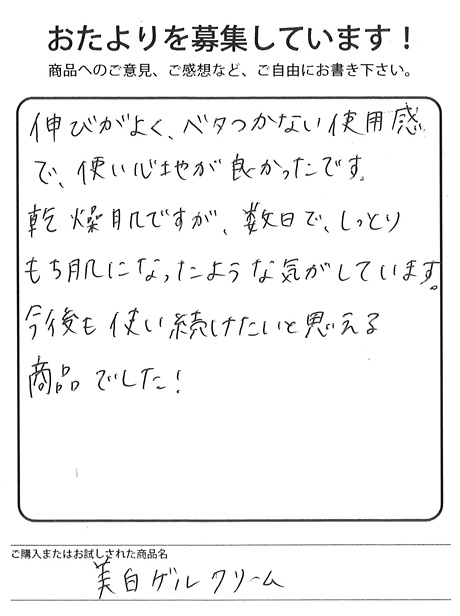 おたよりを募集しています！
商品へのご意見、ご感想など、ご自由にお書き下さい。
伸びがよく、ベタつかない使用感
で、使い心地が良かったです。
乾燥肌ですが、数日で、しっとり
もち肌になったような気がしています。
今後も使い続けたいと思える
商品でした！
ご購入またはお試しされた商品名
美白ゲルクリーム